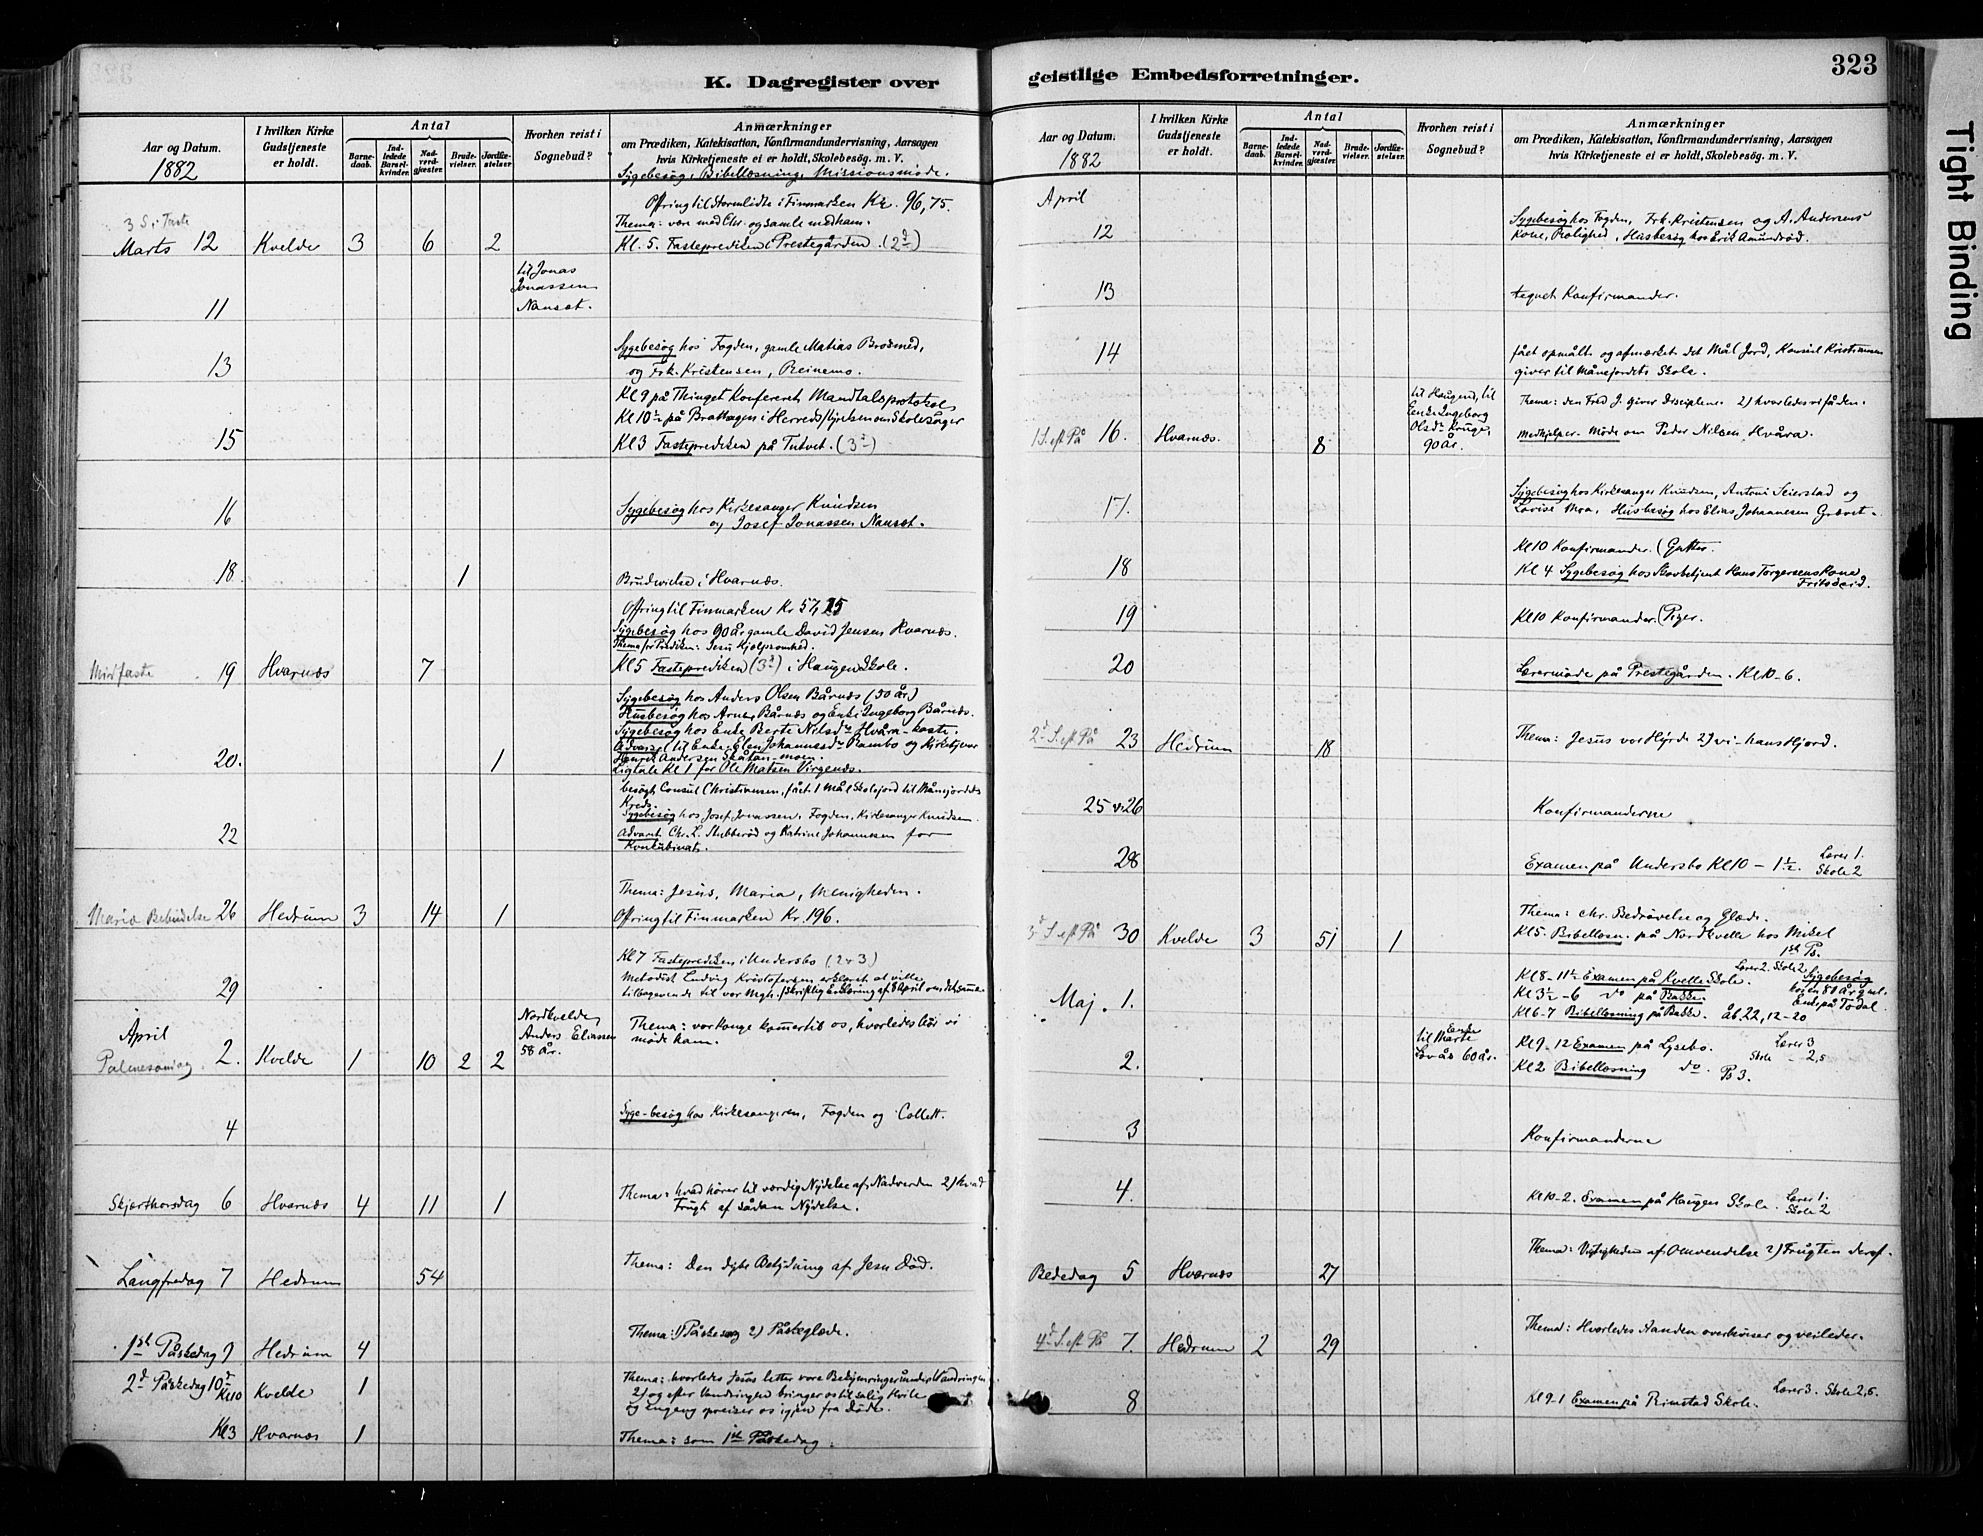 K. Dagregister over
Aar og Datum.
1882
I hvilken Kirke Gudstjeneste er holdt.
Antal
Barnedaab.
Indledede Barselkvinder.
Nadverdgjæster.
Brudevielser.
Jordfæstelser.
Hvorhen reist i Sognebud?
Anmærkninger
om Prædiken, Katekisation, Konfirmandundervisning, Aarsagen
hvis Kirketjeneste ei er holdt, Skolebesøg. m. V.
Sygebesøg, Bibellæsning, Missionsmøde.
Ofring til Stormlidte i Finmarken Kr. 96,75.
3 S. i Faste
Thema: vær med Chr. og samle med ham.
Marts 12 Kvelde 3 6 2 Kl. 5. Fasteprediken i Prestegården. (2d)
11 til Jonas
Jonassen
Nanset.
13 Sygebesøg hos Fogden, gamle Matias Brosmed,
og Frk. Kristensen, Reinemo.
Kl 9 på Thinget Konfereret Mandtalsprotokol
Kl 10½ på Brathagen i Herredsstyrelsen om Skolesager
15 Kl 3 Fasteprediken på Tutvet. (3d)
16 Sygebesøg hos Kirkesanger Knudsen
og Josef Jonassen Nanset.
18 1 Brudvielse i Hvarnæs.
Ofring til Finmarken Kr 57,25
Sygebesøg hos 90 år gamle David Jensen Hvarnæs.
Thema for Prædiken: Jesu Hjælpsomhed.
Midfaste 19 Hvarnæs 7 Kl 5 Fasteprediken (3d) i Haugen Skole.
Sygebesøg hos Anders Olsen Bårnæs (50 år)
Husbesøg hos Arne Bårnæs og Enke Ingeborg Bårnæs.
Sygebesøg hos Enke Berte Nilsdr Hvåra-
Advarsel til Enke Elen Johannesdr Rambo og Kirketjener
Henrik Andersen Skåtan-moen.
20. 1 Ligtale Kl 1 for Ole Matsen Virgenæs.
besøgt Consul Christiansen, fået 1 Mål Skolejord til Månejordets
Kreds.
Sygebesøg hos Josef Jonassen, Fogden, Kirkesanger Knudsen.
22 Advaret Chr. L. Stubberød og Katrine Johannesen for
Konkubinat.
Thema: Jesus, Maria, Menigheden.
Maria Bebudelse 26 Hedrum 3 14 1 Ofring til Finmarken Kr. 196.
Kl 7 Fasteprediken i Undersbo (2 & 3)
Metodist Ludvig Kristofersen erklæret at ville
29 tilbagevende til vor Mgh. / Skriftlig Erklæring af 8 April om det samme
April
Palmesøndag 2. Kvelde 1 10 2 2 Nordkvelde,
Anders Eliassen
58 år.
Thema: vor Konge kommer til os, hvorledes bør vi
møde ham.
4 Syge-besøg hos Kirkesangeren, Fogden og Collett.
Skjærthorsdag 6 Hvarnæs 4 11 1 Thema: hvad hører til værdig Nydelse af Nadverden 2) hvad
Frugt af sådan Nydelse.
Langfredag 7 Hedrum 54 Thema: Den dybe Betydning af Jesu Død.
1ste Påskedag 9 Hedrum 4 Thema: 1) Påskesorg 2) Påskeglæde.
2d Påskedag 10 Kl 10 Kvelde 1 Thema: hvorledes Jesus letter vore Bekymringer under Vandringen
2) og efter Vandringen bringer os til salig Hvile
og engang opreiser os igjen fra Døde.
Kl 3 Hvarnæs 1 Thema: som 1ste Påskedag.
geistlige Embedsforretninger.
323
Aar og Datum.
1882
I hvilken Kirke Gudstjeneste er holdt.
Antal
Barnedaab.
Indledede Barselkvinder.
Nadverdgjæster.
Brudevielser.
Jordfæstelser.
Hvorhen reist i Sognebud?
Anmærkninger
om Prædiken, Katekisation, Konfirmandundervisning, Aarsagen
hvis Kirketjeneste ei er holdt, Skolebesøg. m. V.
April
12 Sygebesøg hos Fogden, Frk. Kristensen og A. Andersens
Kone, Rolighed, Husbesøg hos Erik Amundrød.
13 tegnet Konfirmander.
14 fået opmålt og afmærket det Mål Jord, Konsul Kristiansen
giver til Månejordets Skole.
1 S. eft På 16. Hvarnæs. 8 til Haugen, til
Enke Ingeborg
Olsdr Kruge,
90 år.
Thema: den Fred J. giver Disciplene 2) hvorledes vi få den.
Medhjelper-Møde om Peder Nilsen Hvåra.
17. Sygebesøg hos Kirkesanger Knudsen, Antoni Seierstad og
Lovise Moa, Husbesøg hos Elias Johannesen Grævet.
18 Kl 10 Konfirmander. (Gutter.
Kl 4 Sygebesøg hos Skovbetjent Hans Torgersens Kone
Fritsøeid.
19 Kl 10 Konfirmander. (Piger.
20 Læremøde på Prestegården. Kl 10-6.
2d S. eft På 23 Hedrum 18 Thema: Jesus vor Hyrde 2) vi - hans Hjord.
25 & 26 Konfirmanderne
28 Examen på Undersbo Kl 10 - 1½. Lærer 1.
Skole 2
Thema: Chr. Bedrøvelse og Glæde.
3d S. eft På 30 Kvelde 3 51 1 Kl 5. Bibellæsn. på Nordkvelle hos Mikel
1ste P.
Maj. 1. Kl 8-11½ Examen på Kvelle Skole. Lærer 2. Skole 2. Sygebesøg
Kl 3½-6 do på Bakke
Kl 6-7 Bibellæsning på Bakke. Åb. 22, 12-20
80 år gml. Enke på Tødal
2. til Enke Marte
Løvås 60 år.
Kl 9-12 Examen på Lysebo. Lærer 3
Skole - 2,5
Kl 2 Bibellæsning do. Ps 3.
3 Konfirmanderne
4. Kl 10-2. Examen på Haugen Skole. Lærer 1.
Skole 2
Bededag 5 Hvarnæs 27 Thema: Vigtigheden af Omvendelse 2) Frugten deraf.
4d S. eft På 7. Hedrum 2 29 Thema: Hvorledes Aanden overbeviser og veileder.
8 Kl 9-1 Examen på Rimstad Skole. Lærer 3. Skole 2,5.
Tight Binding